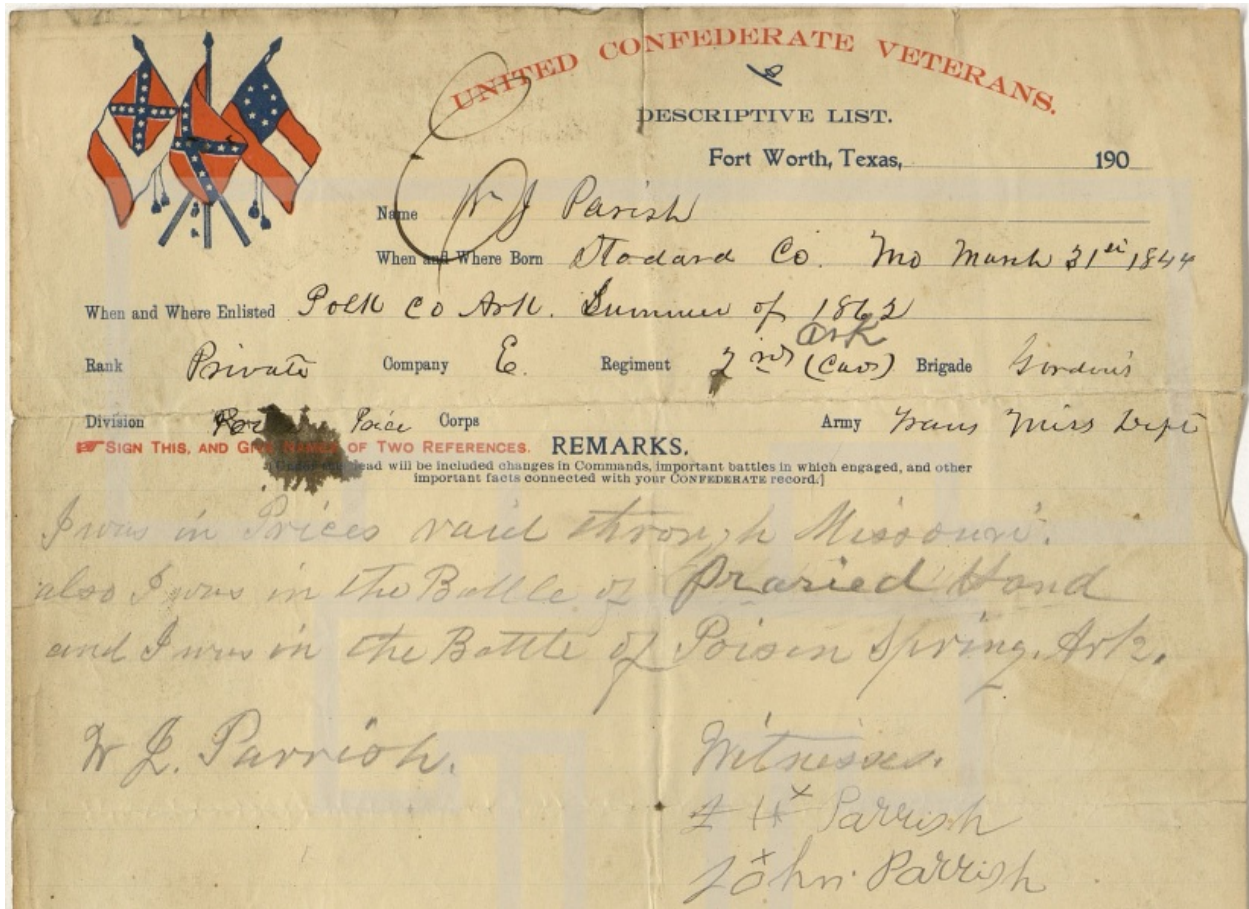 UNITED CONFEDERATE VETERANS.
DESCRIPTIVE LIST.
Fort Worth, Texas, 190
Name W J Parish
When and Where Born Stodard Co. Mo March 31st 1844
When and Where Enlisted Polk Co Ark. Summer of 1862
Ark
Rank Private Company E. Regiment 2nd (Cav) Brigade Gordon's
Division Price Corps Army Trans Miss Dept
SIGN THIS, AND GIVE NAMES OF TWO REFERENCES. REMARKS.
[Under this head will be included changes in Commands, important battles in which engaged, and other
important facts connected with your CONFEDERATE record.]
I was in Prices raid through Missouri.
also I was in the Battle of Praried Hand
and I was in the Battle of Poison Spring. Ark.
W J. Parrish. Witnesses.
H x Parrish
x
John Parrish